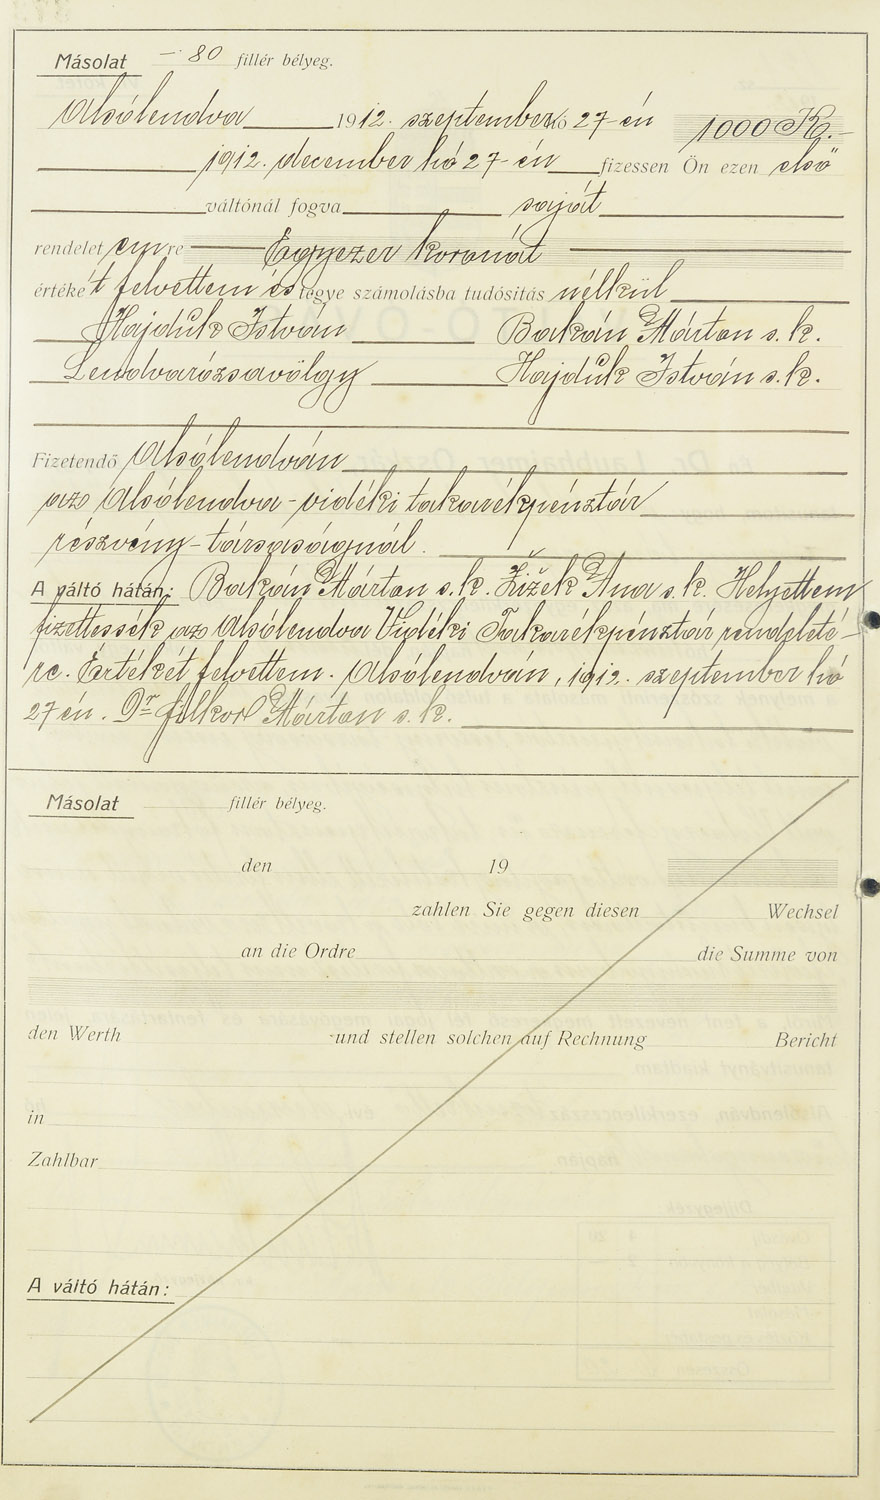 Másolat -·80 fillér bélyeg.
Alsólendva 1912. szeptember hó 27-én 1000 K.-
1912. december hó 27-én fizessen Ön ezen első
váltónál fogva saját
rendelet emre Egyezer koronát
értékét felvettem és tegye számolásba tudósítás nélkül
Hajduk István Bakán Márton s.k.
Lendvarózsavölgy Hajduk István s.k.
Fizetendő Alsólendván
az Alsólendva-vidéki takarékpénztár
részvény-társaságnál.
A váltó hátán: Bakán Márton s.k. Žižek Ana s.k. Helyettem
fizettessék az Alsólendva Vidéki Takarékpénztár rendeleté-
re. Értékét felvettem. Alsólendván, 1912. szeptember hó
27 én. Dr Márton s.k.
Másolat fillér bélyeg.
den 19
zahlen Sie gegen diesen Wechsel
an die Ordre die Summe von
den Werth und stellen solchen auf Rechnung Bericht
in
Zahlbar
A váltó hátán: